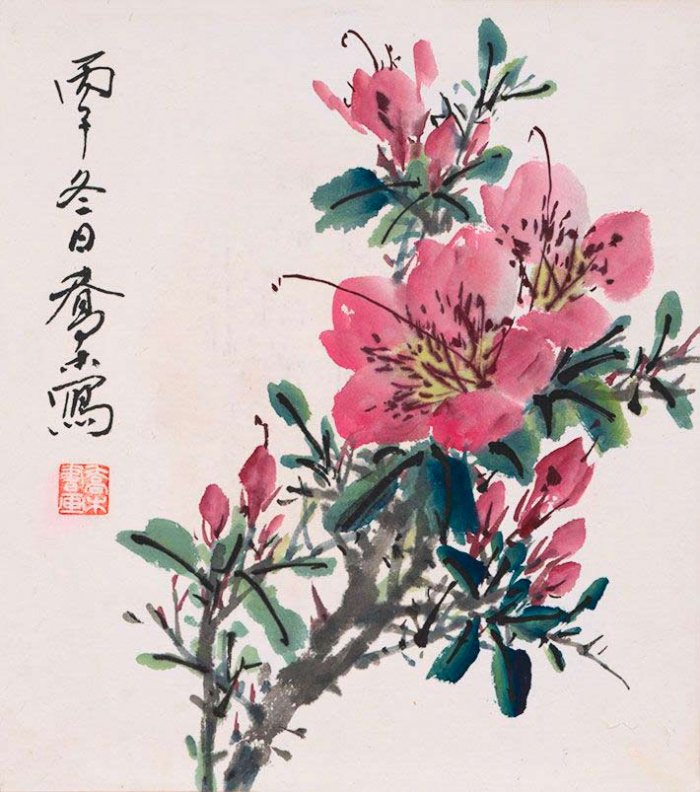 丙午冬日喬木寫
喬木書画